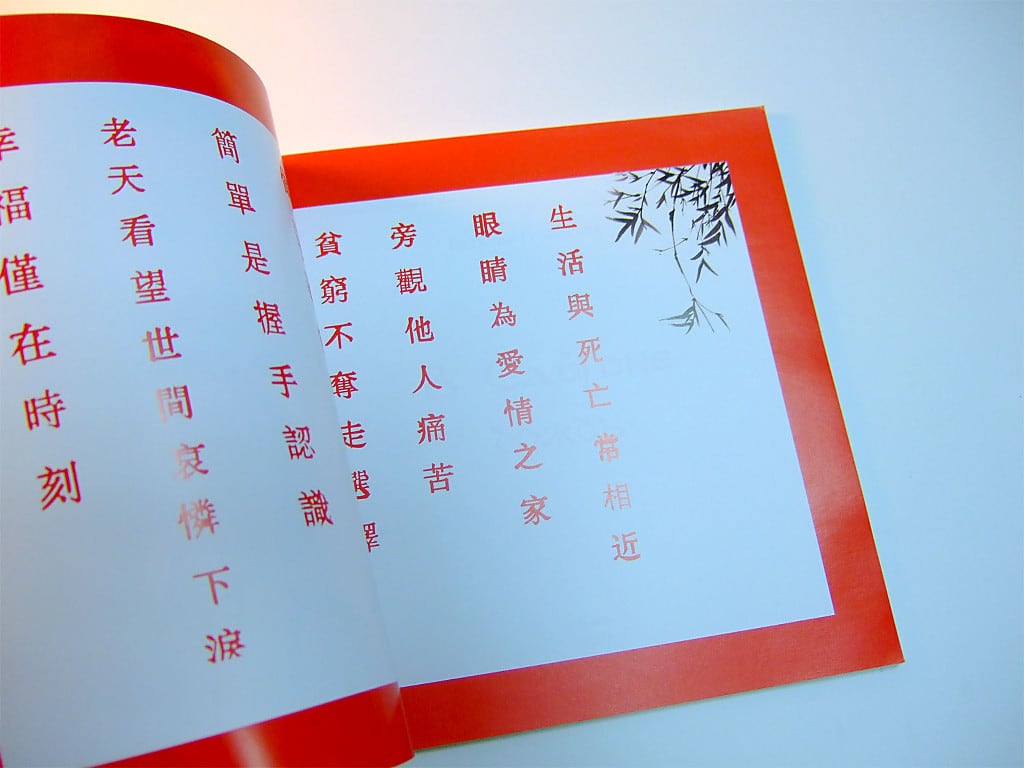 生活與死亡常相近
眼睛為愛情之家
旁觀他人痛苦
貧窮不奪走選擇
簡單是握手認識
老天看望世間哀憐下淚
幸福僅在時刻